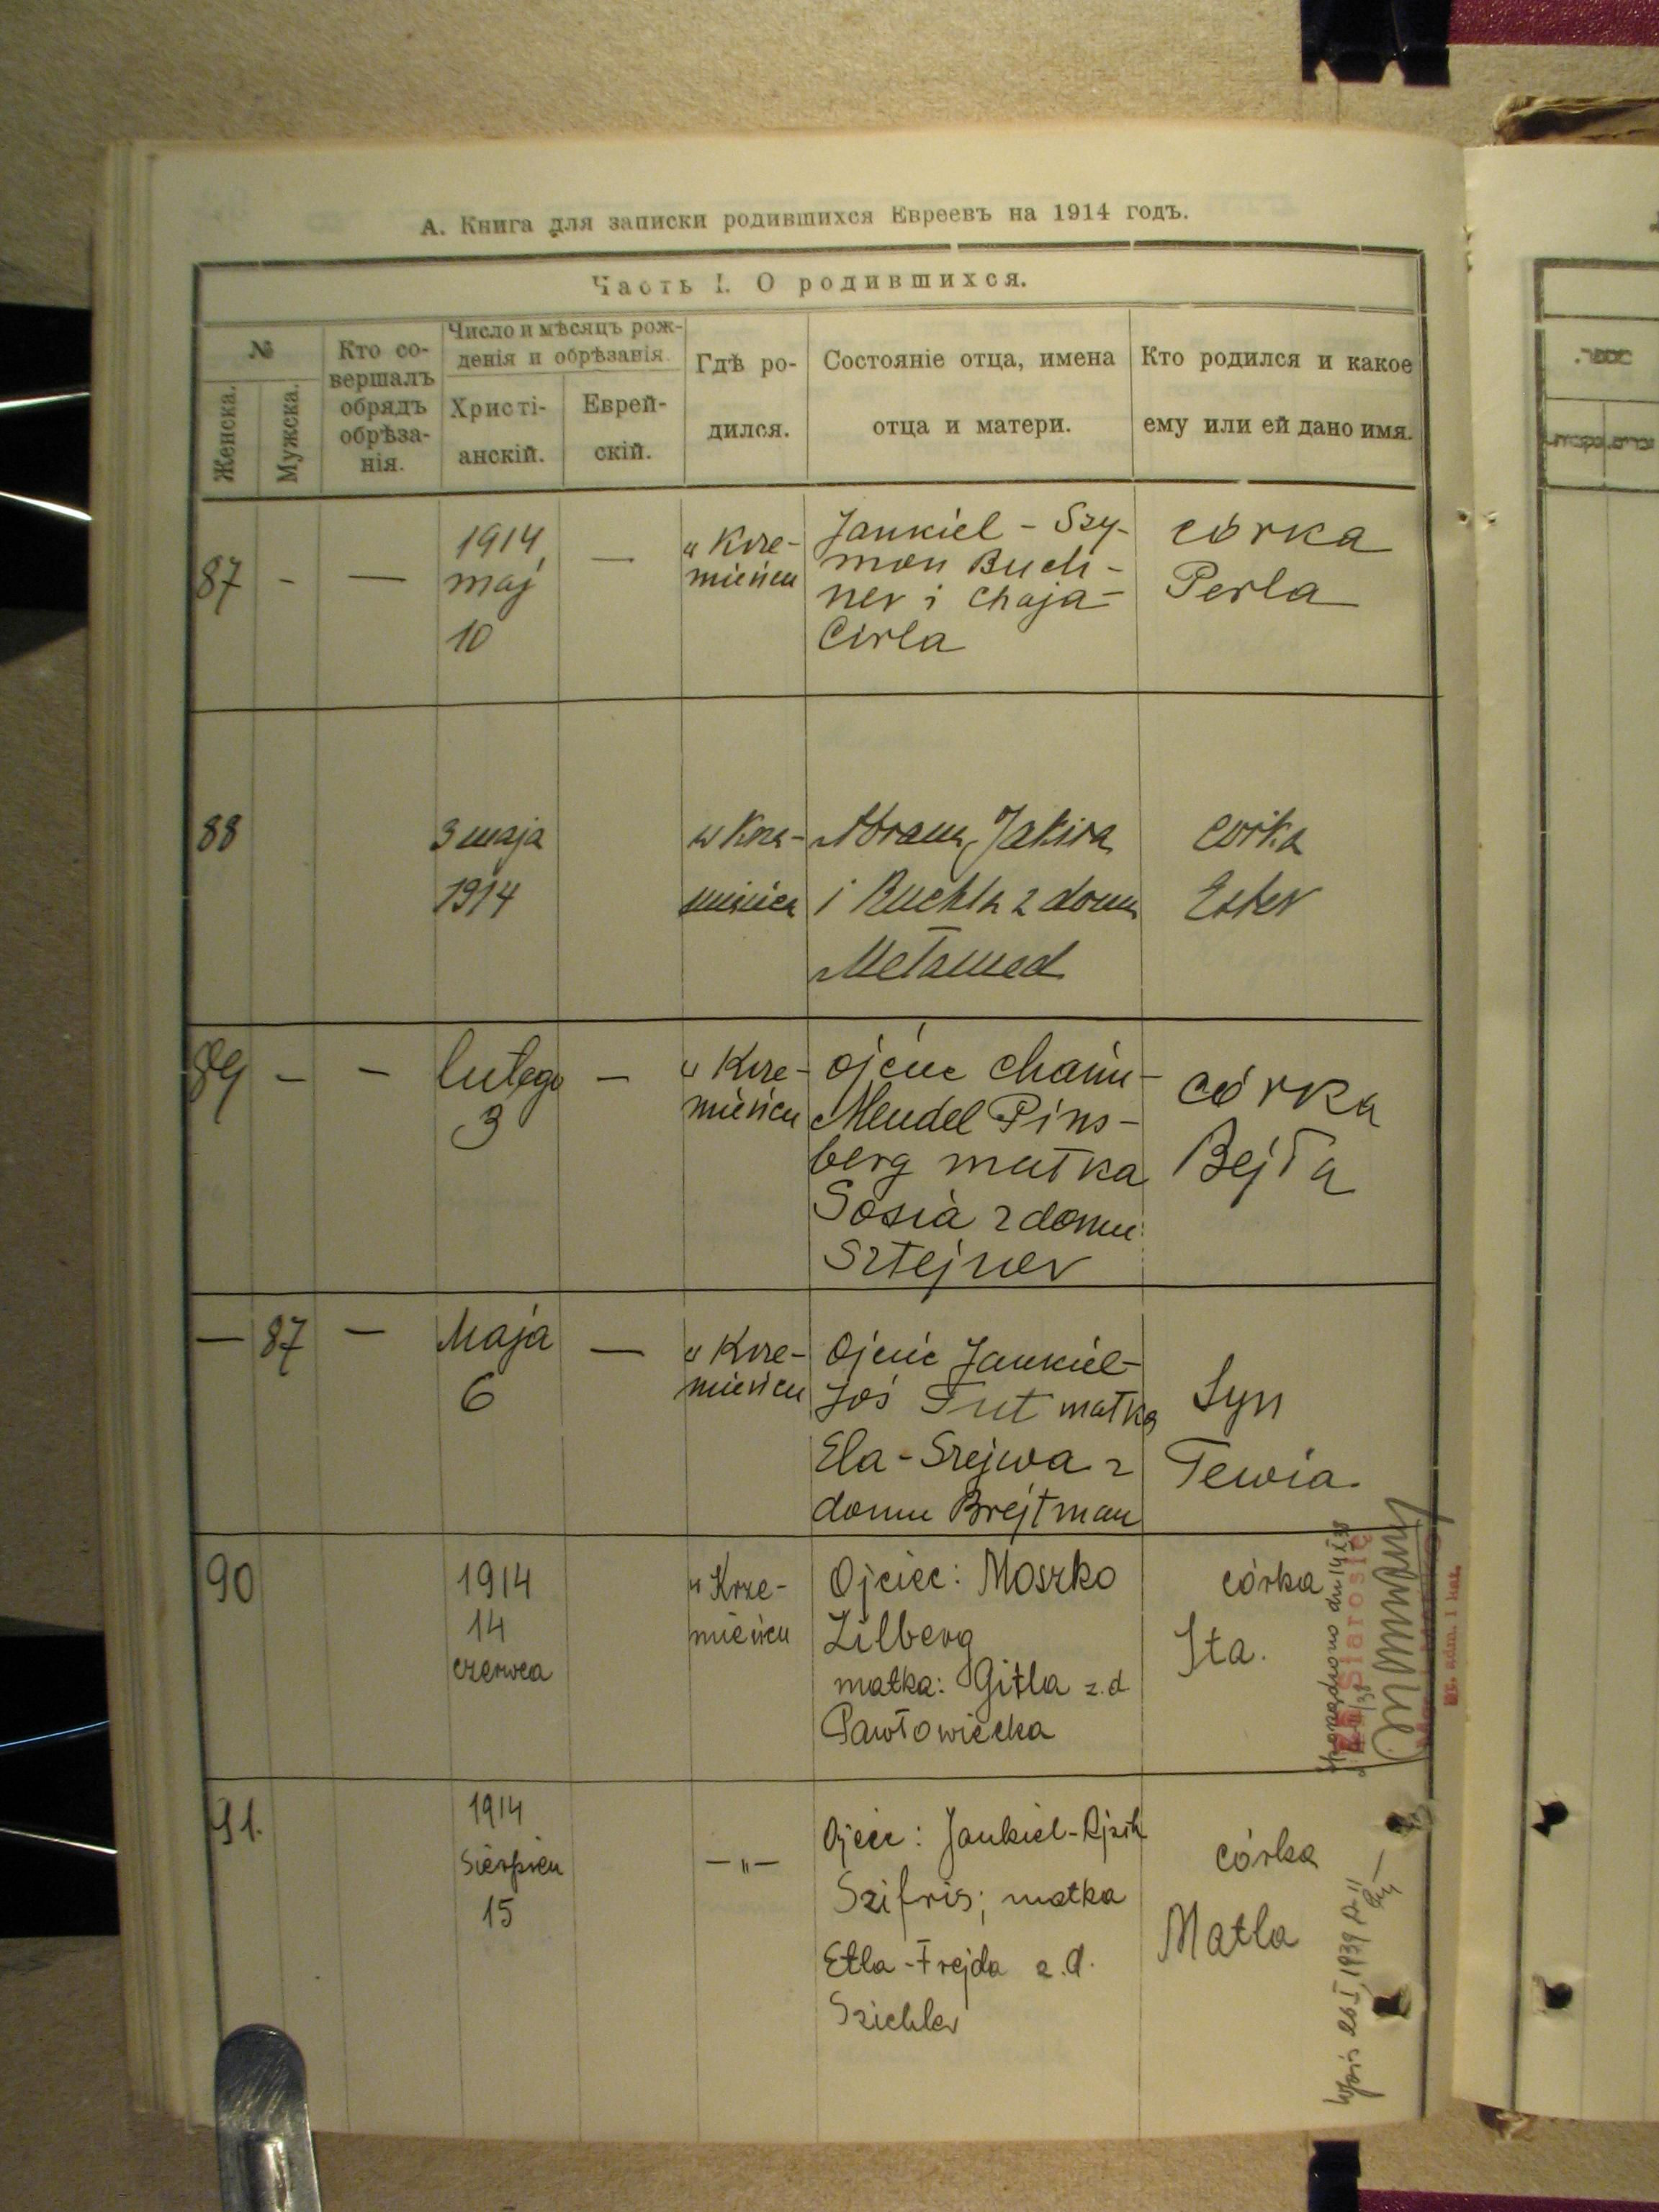 А. Книга для записки родившихся Евреевъ на 1914 годъ.
Часть I. О родившихся.
№
Женска.
Мужска.
Кто со-
вершалъ
обрядъ
обрѣза-
нія.
Число и мѣсяцъ рож-
денія и обрѣзанія.
Христі-
анскій.
Еврей-
скій.
Гдѣ ро-
дился.
Состояніе отца, имена
отца и матери.
Кто родился и какое
ему или ей дано имя.
87 - —
1914
maj
10
—
w Krze-
mieńcu
Jankiel - Szy-
mon Buch-
ner i Chaja-
Cirla
córka
Perla
88
3 maja
1914
w Krze-
mieńcu
Abram Jakira
i Ruchla z domu
Mełamed
córka
Ester
89 - -
lutego
3
-
w Krze-
mieńcu
ojciec Chaim-
Mendel Pins-
berg matka
Sosia z domu
Sztejner
córka
Bejła
— 87 —
Maja
6
—
w Krze-
mieńcu
Ojciec Jankiel-
Joś Fut matka
Ela-Szejwa z
domu Brejtman
Syn
Tewia.
90
1914
14
czerwca
w Krze-
mieńcu
Ojciec: Moszko
Zilberg
matka: Gitla z.d
Pawłowiecka
córka
Ita.
91.
1914
Sierpień
15
—„—
Ojciec: Jankiel-
Szifris; matka
Etla-Frejda z.d.
Szichler
córka
Matla
Starosty
adm. 1 kat.
26 I 1939